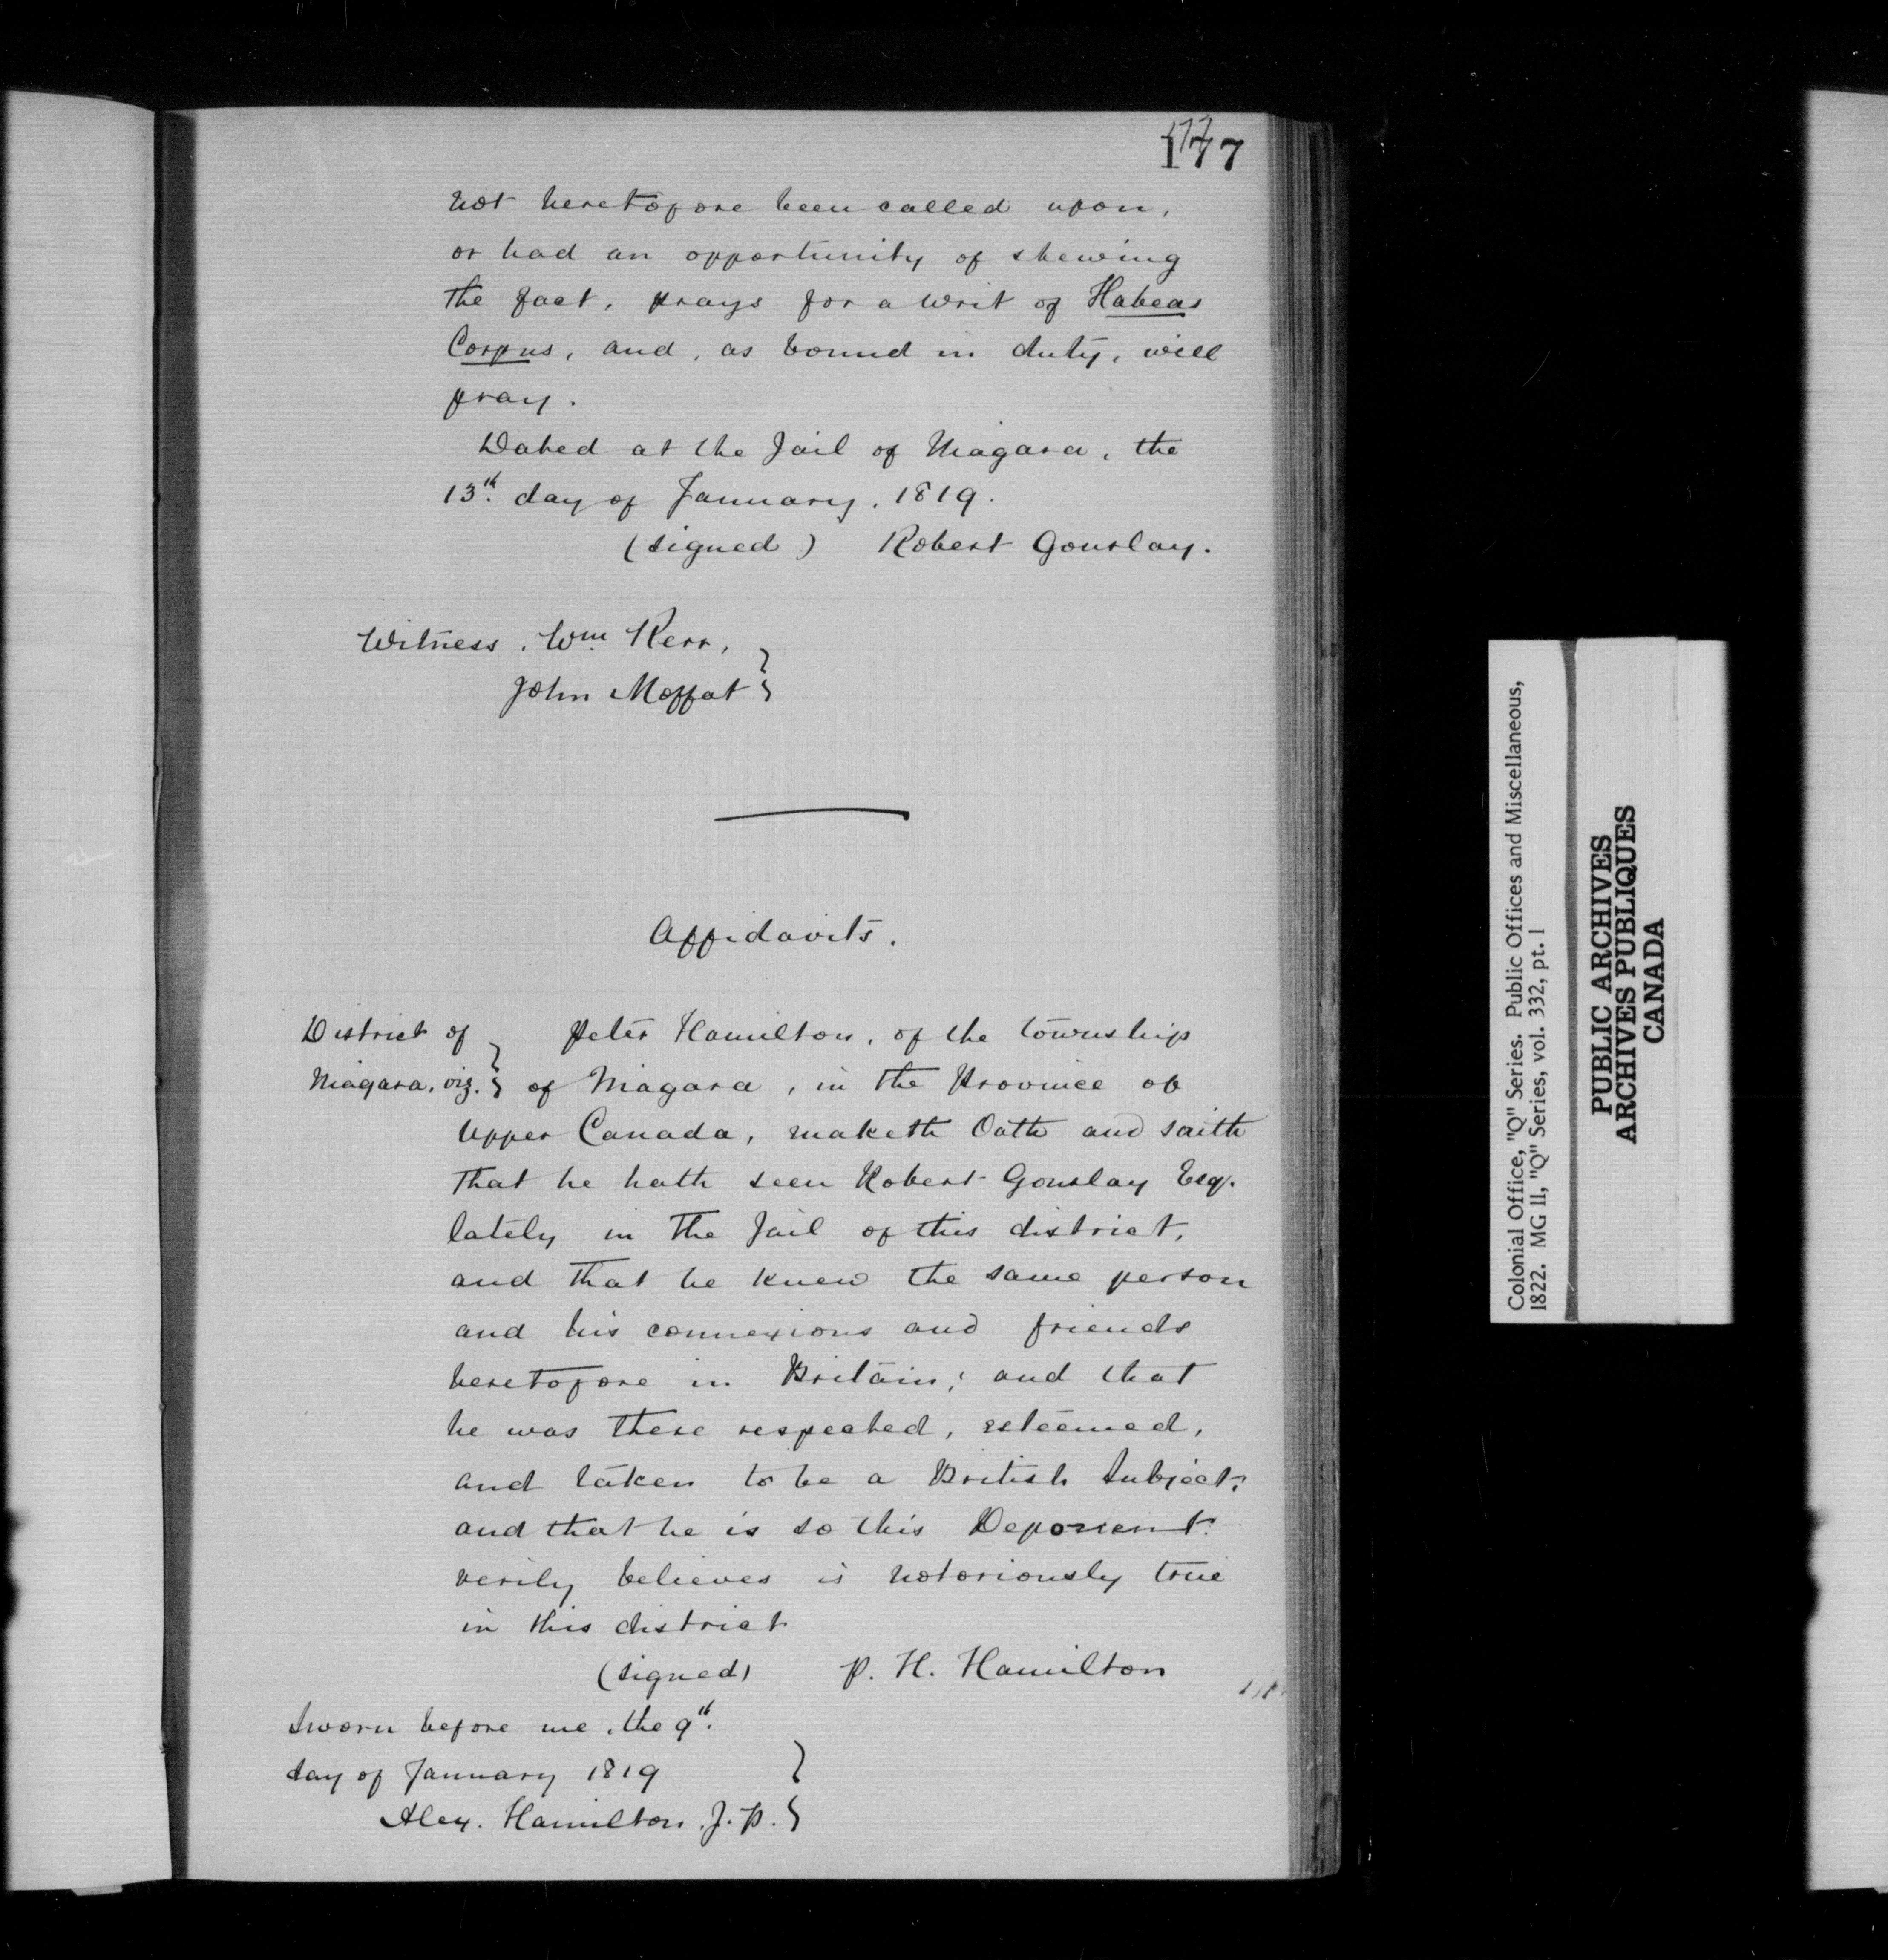 177
177
not heretofore been called upon,
or had an opportunity of shewing
the fact, prays for a writ of Habeas
Corpus, and, as bound in duty, will
pray.
Dated at the Jail of Niagara, the
13th. day of January, 1819.
(signed) Robert Gourlay.
Witness, Wm. Kerr, }
John Moffat }
Affidavits.
District of } Peter Hamilton, of the township
Niagara, viz. } of Niagara, in the Province of
Upper Canada, maketh Oath and saith
that he hath seen Robert Gourlay Esq.
lately in the Jail of this district,
and that he knew the same person
and his connexions and friends
heretofore in Britain; and that
he was there respected, esteemed,
and taken to be a British Subject;
and that he is so this Deponent
verily believes is notoriously true
in this district
(signed) P. H. Hamilton
Sworn before me, the 9th.
day of January 1819 }
Alex. Hamilton, J. P. }
Colonial Office, "Q" Series. Public Offices and Miscellaneous,
1822. MG 11, "Q" Series, vol. 332, pt. 1
PUBLIC ARCHIVES
ARCHIVES PUBLIQUES
CANADA